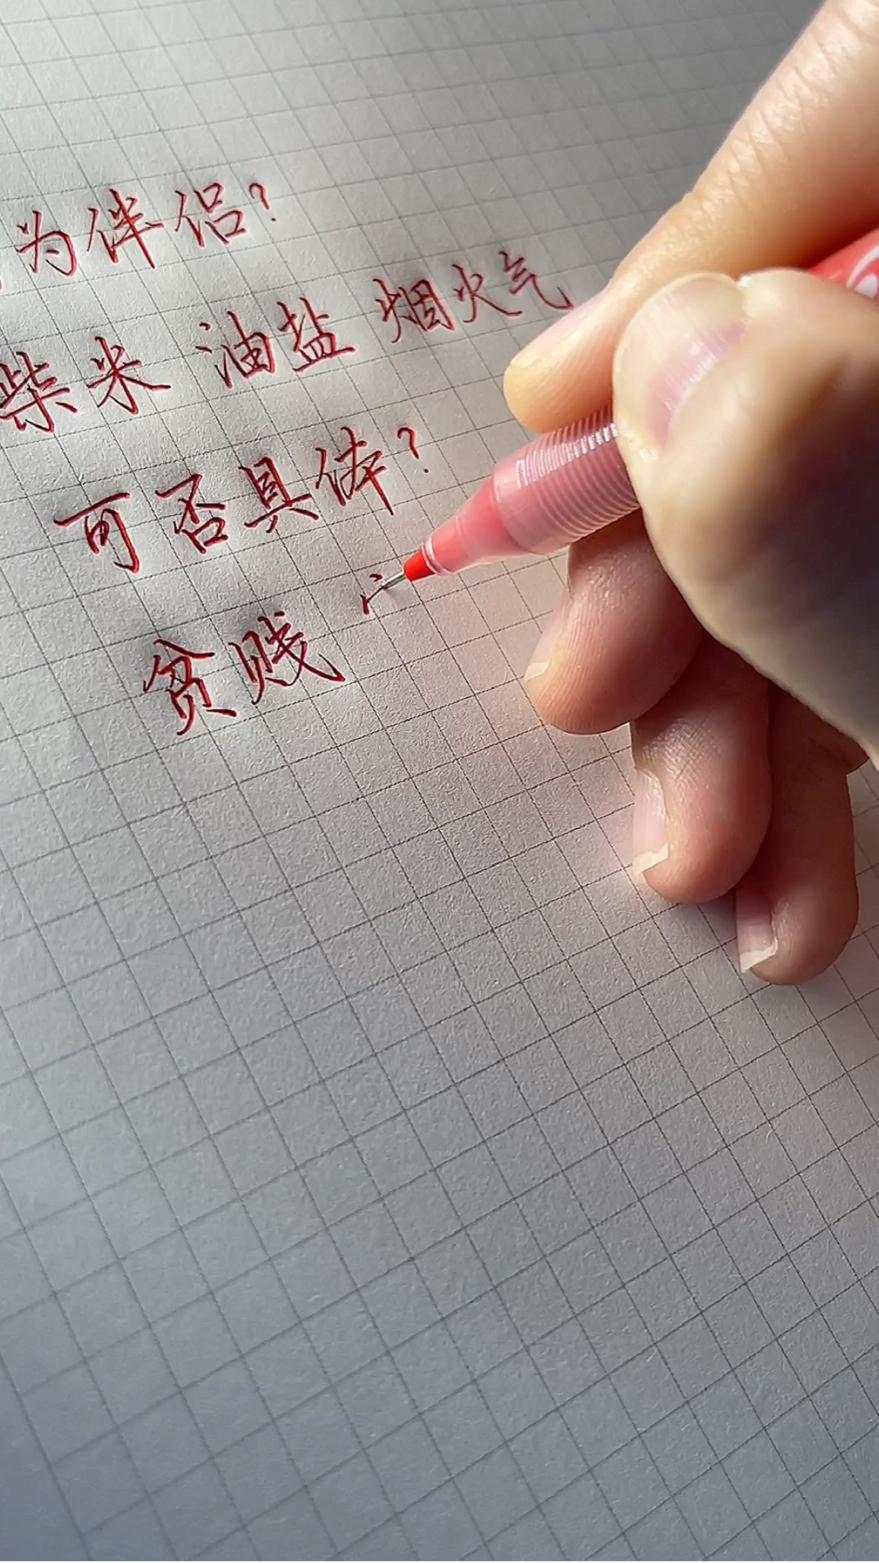 为伴侣?
柴米 油盐 烟火气
可否具体?
贫贱